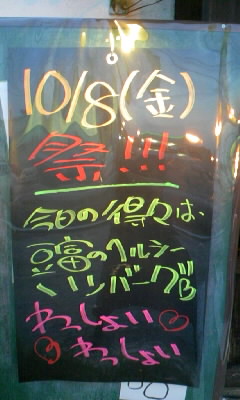 10/8(金)
祭!!!
今日の得々は、
豆富のヘルシー
ハンバーグ♡
わっしょい♡
♡わっしょい